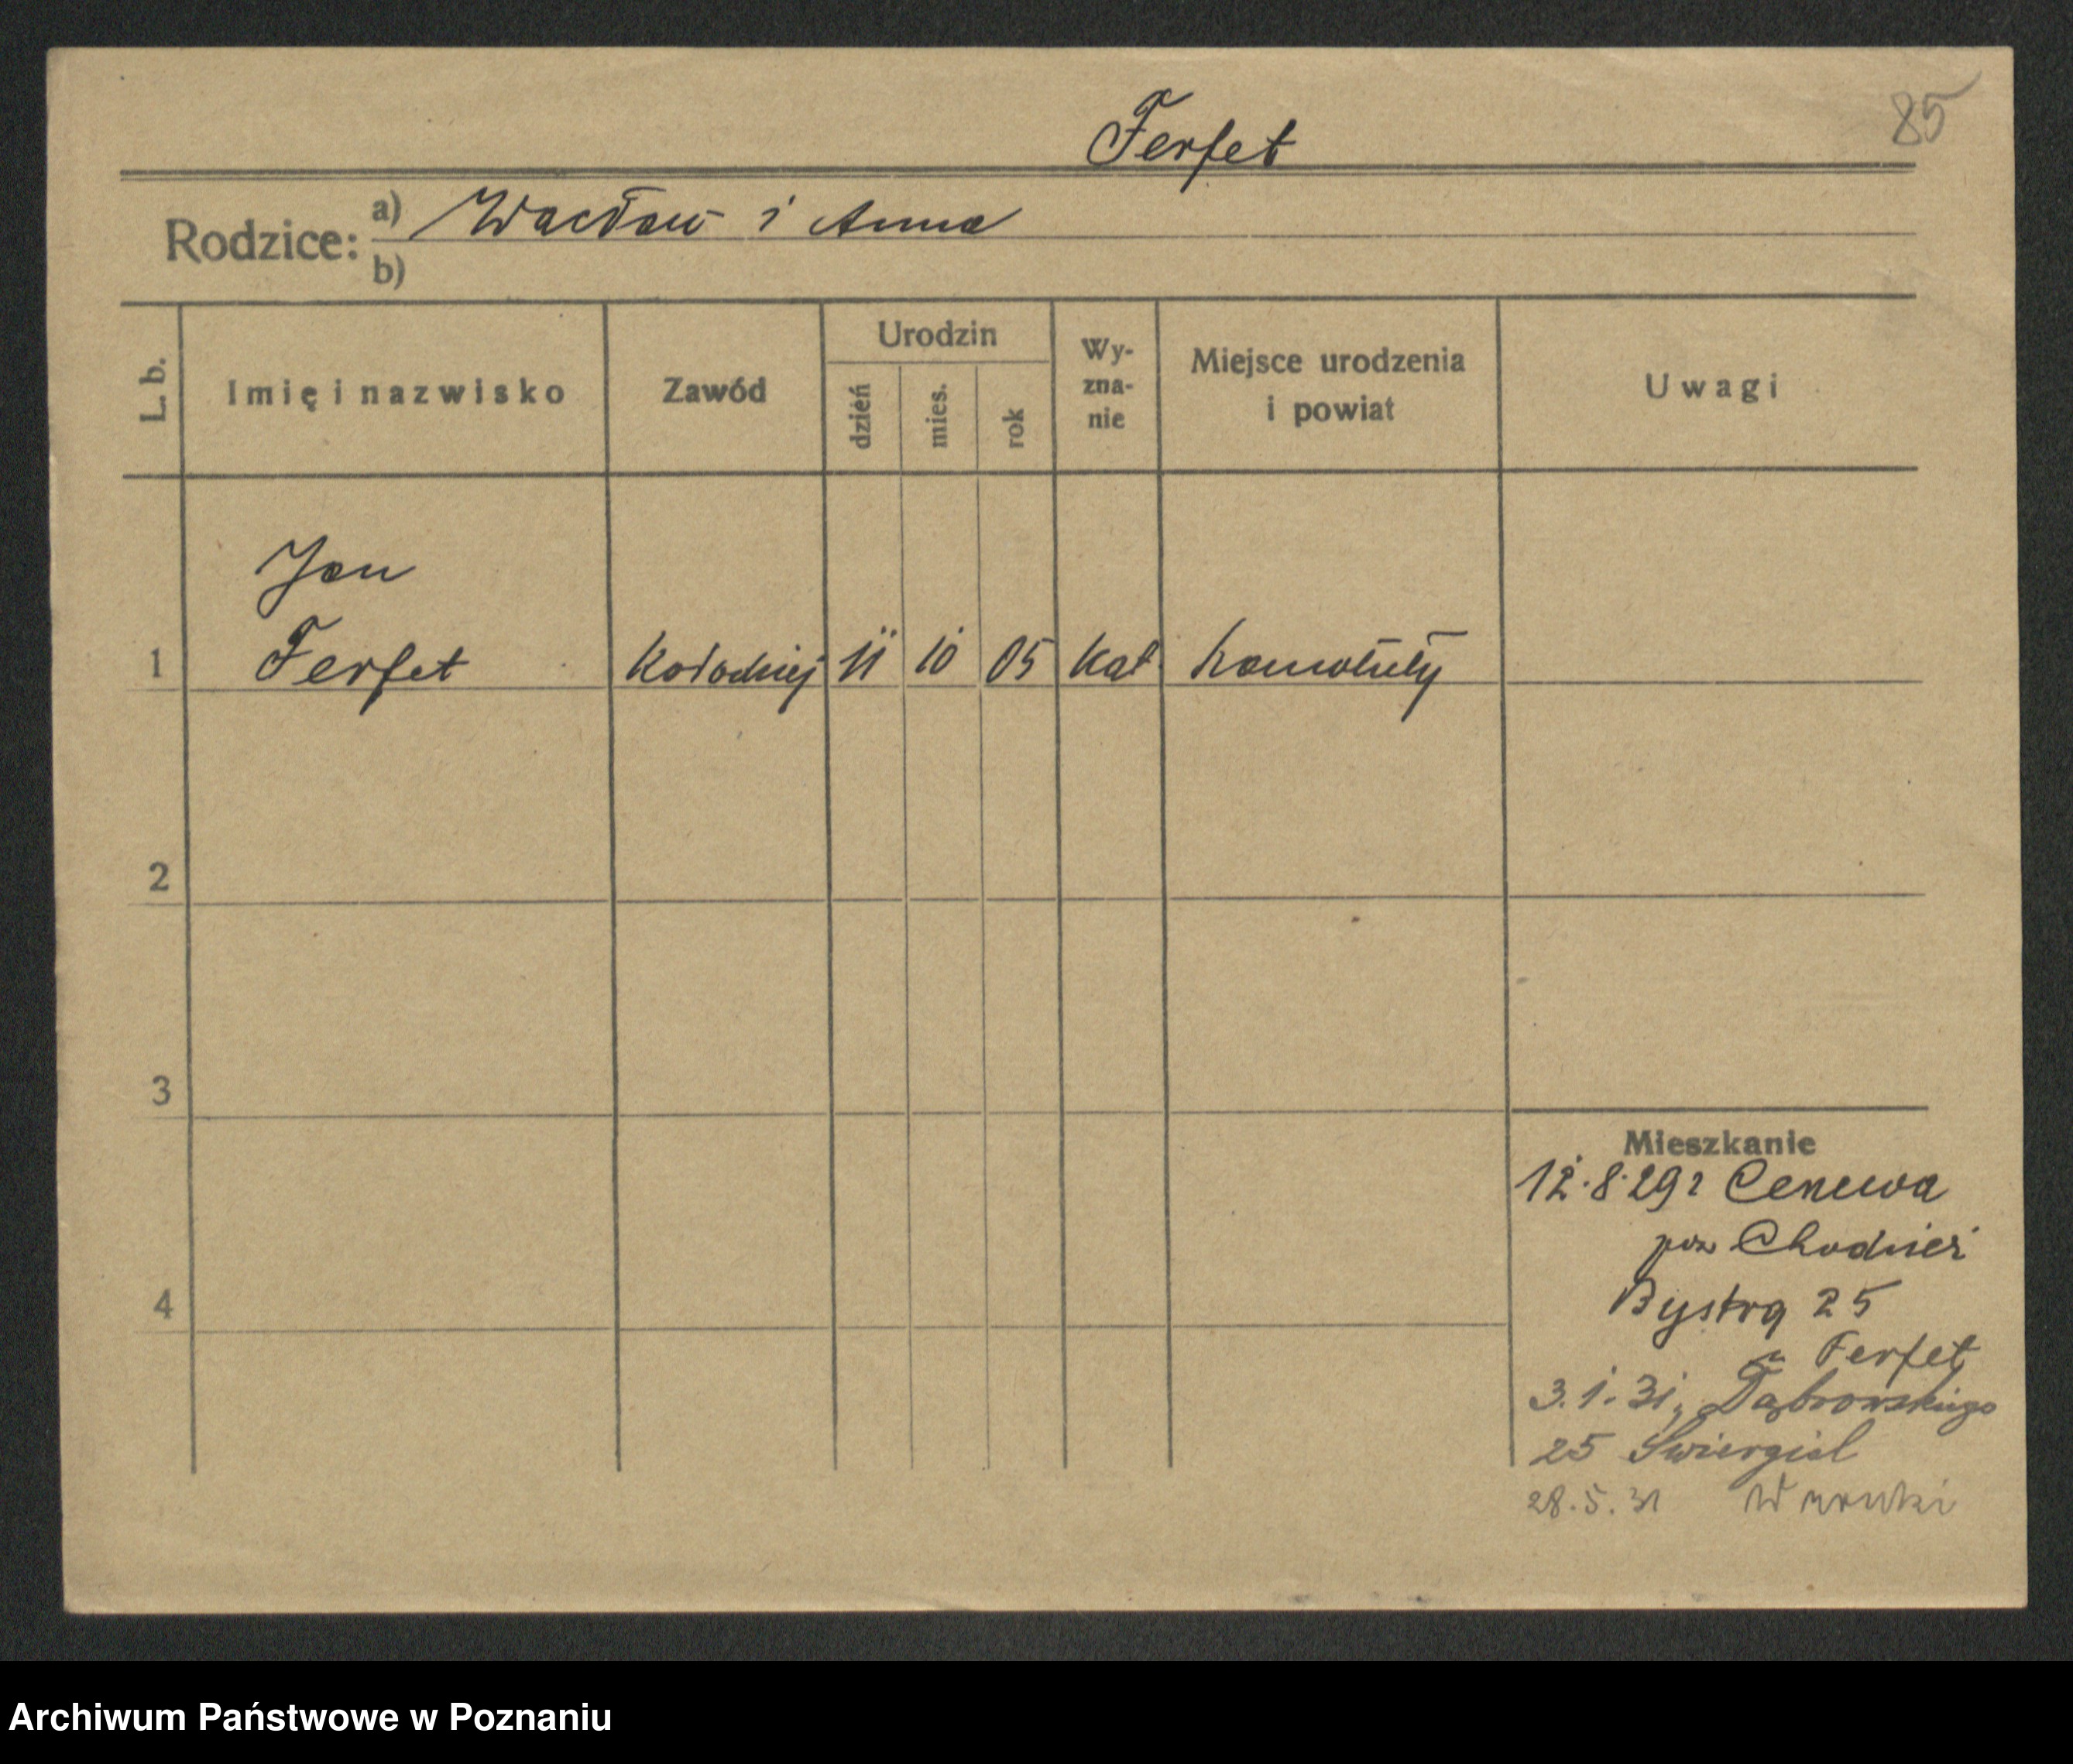 85
Ferfet
Rodzice: a) Wacław i Anna
b)
L. b. Imię i nazwisko Zawód Urodzin dzień mies. rok Wy-zna-nie Miejsce urodzenia i powiat Uwagi
Jan
1 Ferfet Kołodziej 11 10 05 Kat.
2
3
4
Mieszkanie
12.8.29
pow Chodzież
Bystrą 25
u Ferfet
3.1.31, Dąbrowskiego
25 Świergiel
28.5.31 Wronki
Archiwum Państwowe w Poznaniu